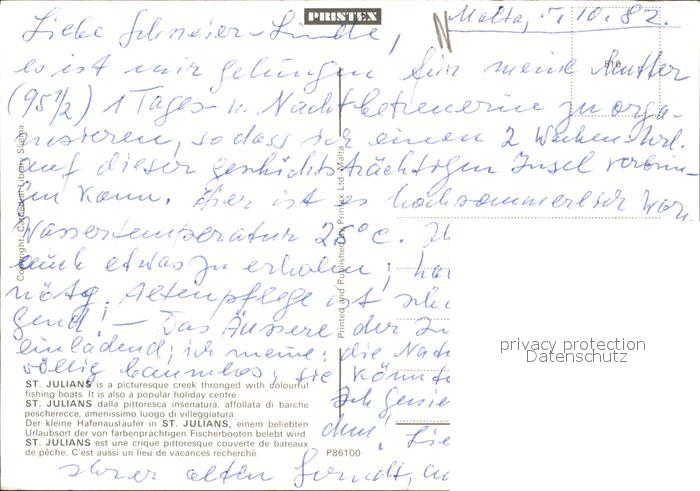 PRINTEX
Malta, 5.10.82.
Liebe
es ist mir gelungen für meine Mutter
(95 1/2) 1 Tages- u. Nachtbetreuerin zu orga-
nisieren, so dass ich einen 2 Wochen-Url.
auf dieser geschichtsträchtigen Insel verbrin-
gen kann. Hier ist es hochsommerlich warm
Wassertemperatur 25°C.
auch etwas zu erholen;
nötig. Altenpflege ist
gend! – Das Äussere der
einladend; ich meine: die
völlig baumlos; sie könnte
Ich
privacy protection
Datenschutz
Copyright: Library Sliema
Printed and Published by Printex Ltd - Malta
ST. JULIANS is a picturesque creek thronged with colourful
fishing boats. It is also a popular holiday centre.
ST. JULIANS dalla pittoresca insenatura, affollata di barche
pescherecce, amenissimo luogo di villeggiatura.
Der kleine Hafenausläufer in ST. JULIANS, einem beliebten
Urlaubsort der von farbenprächtigen Fischerbooten belebt wird.
ST. JULIANS est une crique pittoresque couverte de bateaux
de pêche. C'est aussi un lieu de vacances recherché.
P86100
alten